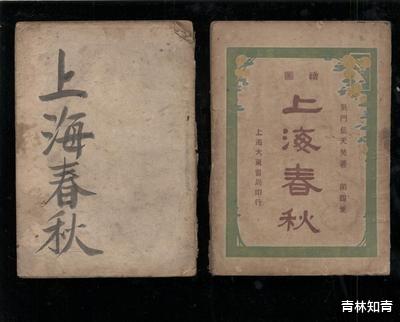 上海春秋
繪圖
吳門包天笑著
上海春秋
上海大東書局印行
青林知青